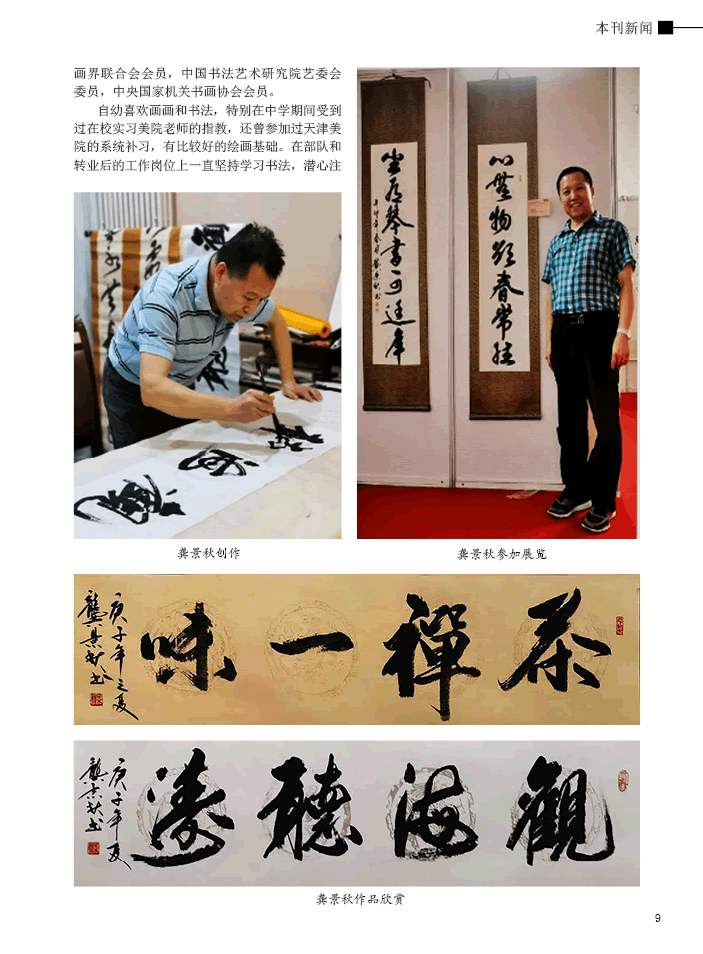 本刊新闻
画界联合会会员，中国书法艺术研究院艺委会
委员，中央国家机关书画协会会员。
自幼喜欢画画和书法，特别在中学期间受到
过在校实习美院老师的指教，还曾参加过天津美
院的系统补习，有比较好的绘画基础。在部队和
转业后的工作岗位上一直坚持学习书法，潜心注
心無物欲春常駐
坐有琴書
龚景秋创作
龚景秋参加展览
茶禪一味
庚子年之夏
龔景秋书
觀海聽濤
庚子年夏
龔景秋书
龚景秋作品欣赏
9